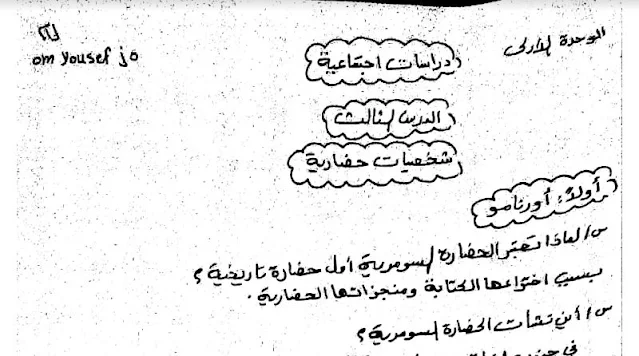 الوحدة الأولى
om yousef jo
دراسات اجتماعية
الدرس الثالث
شخصيات حضارية
أولاً: أورنامو
س/ لماذا تعتبر الحضارة السومرية أول حضارة تاريخية؟
بسبب اختراعها الكتابة ومنجزاتها الحضارية.
س/ أين نشأت الحضارة السومرية؟
في